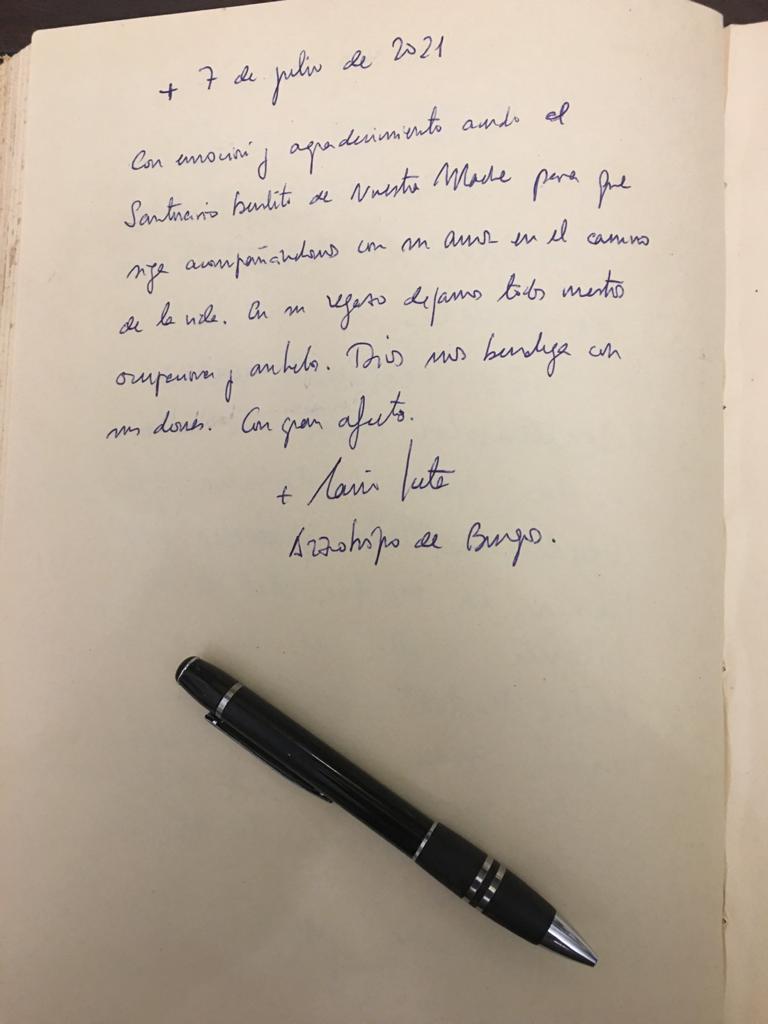 + 7 de julio de 2021
Con emoción y agradecimiento acudo al
Santuario bendito de Nuestra Madre para que
siga acompañándonos con su amor en el camino
de la vida. En su regazo dejamos todas nuestras
y anhelos. Dios nos bendiga con
sus dones. Con gran afecto.
+ Mario Iceta
Arzobispo de Burgos.